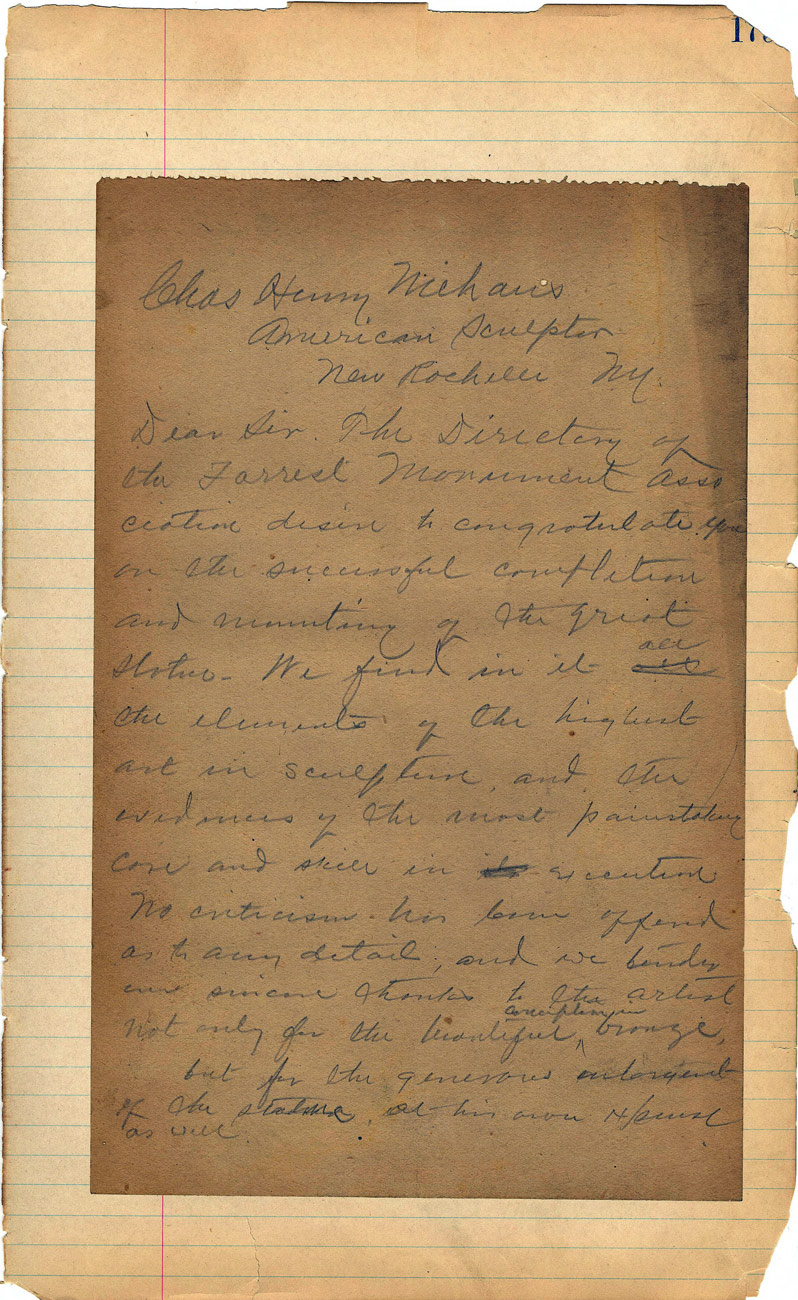 Chas Henry Niehaus
American Sculptor
New Rochelle NY.
Dear Sir. The Directory of
the Forrest Monument Asso
ciation desire to congratulate you
on the successful completion
and mounting of the great
Statue - We find in it all
the elements of the highest
art in sculpture, and the
evidences of the most painstaking
care and skill in execution
No criticism has been offered
as to any detail, and we tender
our sincere thanks to the artist
conception in
not only for the beautiful ^ bronze,
but for the generous enlargement
of the statue, at his own expense
as well